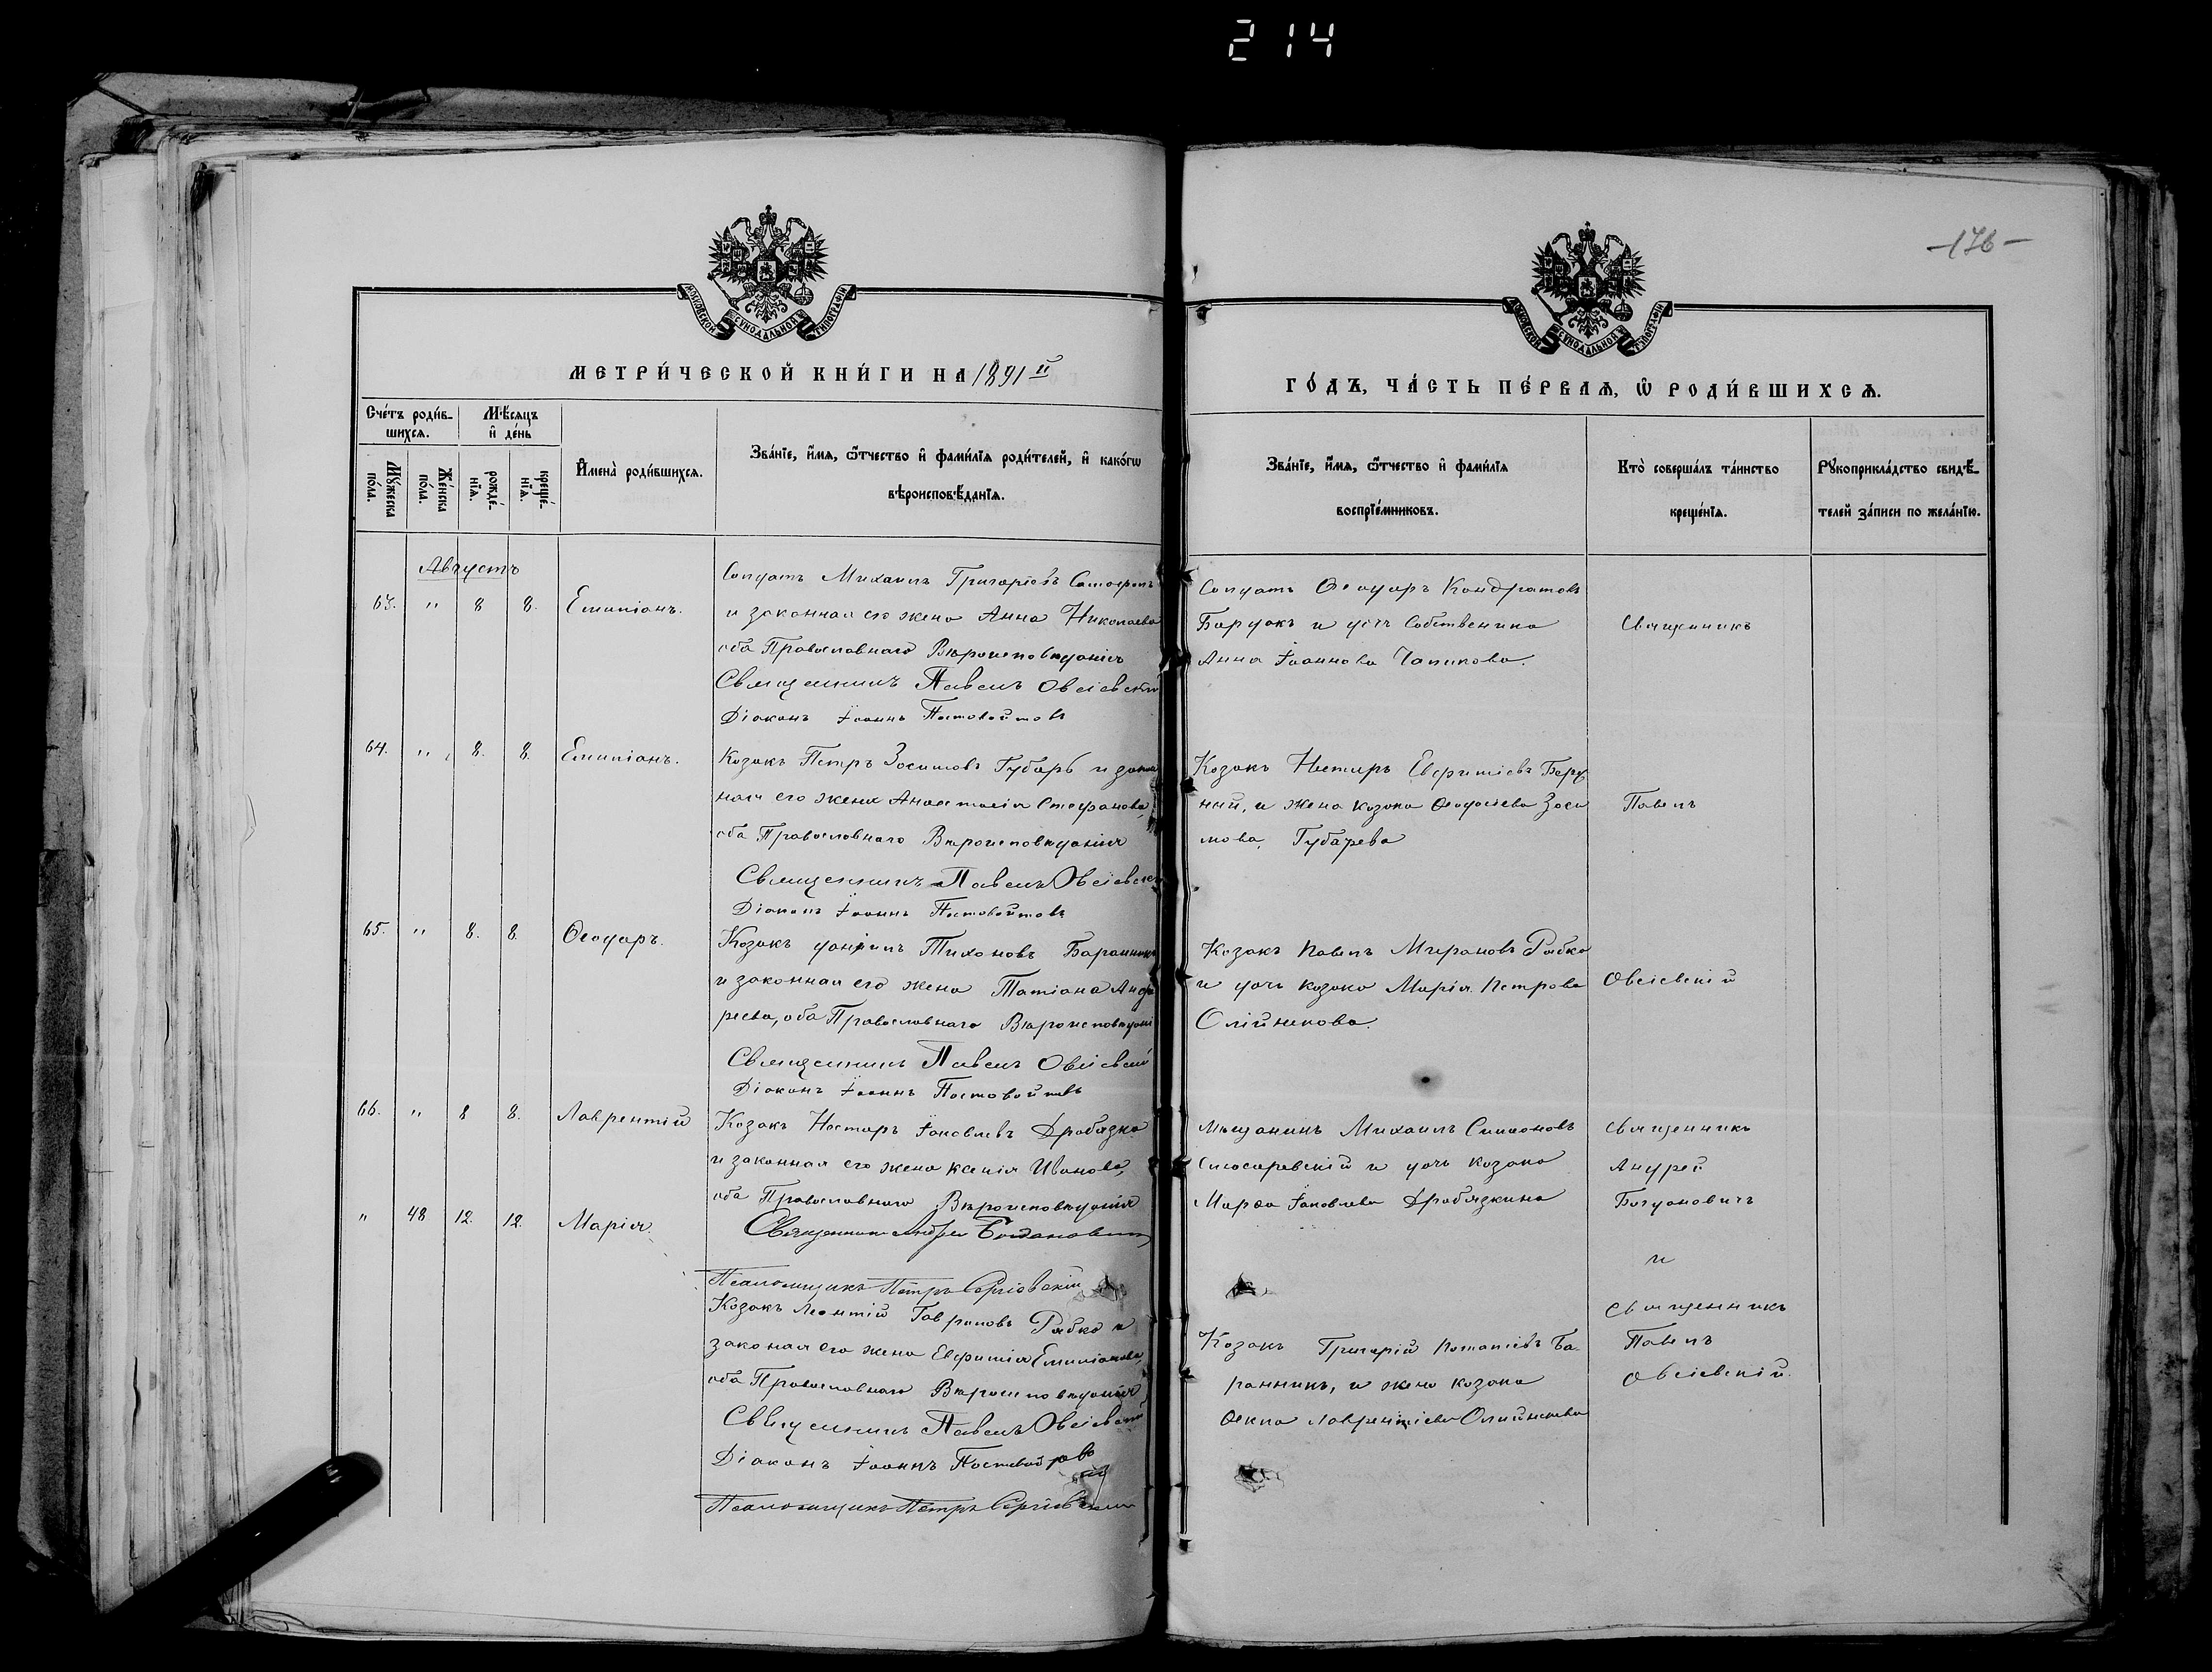 214
-176-
МОСКОВСКОЙ СѴНОДАЛЬНОЙ ТИПОГРАФІИ
МОСКОВСКОЙ СѴНОДАЛЬНОЙ ТИПОГРАФІИ
МЕТРИ́ЧЕСКОЙ КНИ́ГИ НА 1891й
ГО́ДЪ, ЧА́СТЬ ПЕ́РВАѦ, Ѡ РОДИ́ВШИХСѦ.
Сче́тъ роди́в-
шихсѧ.
Мѣ́сѧцъ
и҆ де́нь
Мꙋ́жеска
по́ла.
Же́нска
по́ла.
рожде́-
нїѧ.
креще́-
нїѧ.
И҆мена̀ роди́вшихсѧ.
Зва́нїе, и҆́мѧ, ѻ҆́тчество и҆ фами́лїѧ роди́телей, и҆ како́гѡ
вѣроисповѣ́данїѧ.
Зва́нїе, и҆́мѧ, ѻ҆́тчество и҆ фами́лїѧ
воспрїе́мниковъ.
Кто̀ соверша́лъ та́инство
креще́нїѧ.
Рꙋкоприкла́дство свидѣ́-
телей за́писи по жела́нїю.
Августъ
63. " 8 8. Емиліанъ.
Солдатъ Михаилъ Григоріевъ
и законная его жена Анна Николаева
оба Православнаго Вѣроисповѣданія
Священникъ Павелъ Овсіевскій
Діаконъ Іоаннъ Постовойтовъ
Солдатъ Ѳеодоръ Кондратовъ
и дочь Собственика
Анна Іоаннова Чапикова.
Священникъ
64. " 8. 8. Емиліанъ.
Козакъ Петръ Зосимовъ Губарь и закон
ная его жена Анастасія Стефанова,
оба Православнаго Вѣроисповѣданія
Священникъ Павелъ Овсіевск
Діаконъ Іоаннъ Постовойтовъ
Козакъ Несторъ Евфиміевъ
ный, и жена козака Ѳеодосіева Зоси
мова, Губарева
Павелъ
65. " 8. 8. Ѳеодоръ.
Козакъ Даніилъ Тихоновъ Баранникъ
и законная его жена Татіана Анд
реева, оба Православнаго Вѣроисповѣдані
Священникъ Павелъ Овсіевскій
Діаконъ Іоаннъ Постовойтовъ
Козакъ Павелъ Мироновъ Рябко
и дочь козака Марія Петрова
Олійникова.
Овсіевскій
66. " 8 8. Лаврентій
Козакъ Несторъ Іаковлевъ Дробязко
и законная его жена Ксенія Иванова,
оба Православнаго Вѣроисповѣданія
Священникъ Андрей Богдановичъ
Псаломщикъ Петръ Сергіевскій
Мѣщанинъ Михаилъ Симоновъ
Слюсаревскій и дочь козака
Марѳа Іаковлева Дробязкина
Священникъ
Андрей
Богдановичъ
и
" 48 12. 12. Марія.
Козакъ Леонтій Гавриловъ Рябко и
законая его жена Евфимія Емиліанова,
оба Православнаго Вѣроисповѣданія
Священникъ Павелъ Овсіевскій
Діаконъ Іоаннъ Постовойтовъ
Псаломщикъ Петръ Сергіевскій
Козакъ Григорій Потапіевъ Ба-
ранникъ, и жена козака
Ѳекла Лаврентіева Олійникова
Священникъ
Павелъ
Овсіевскій.